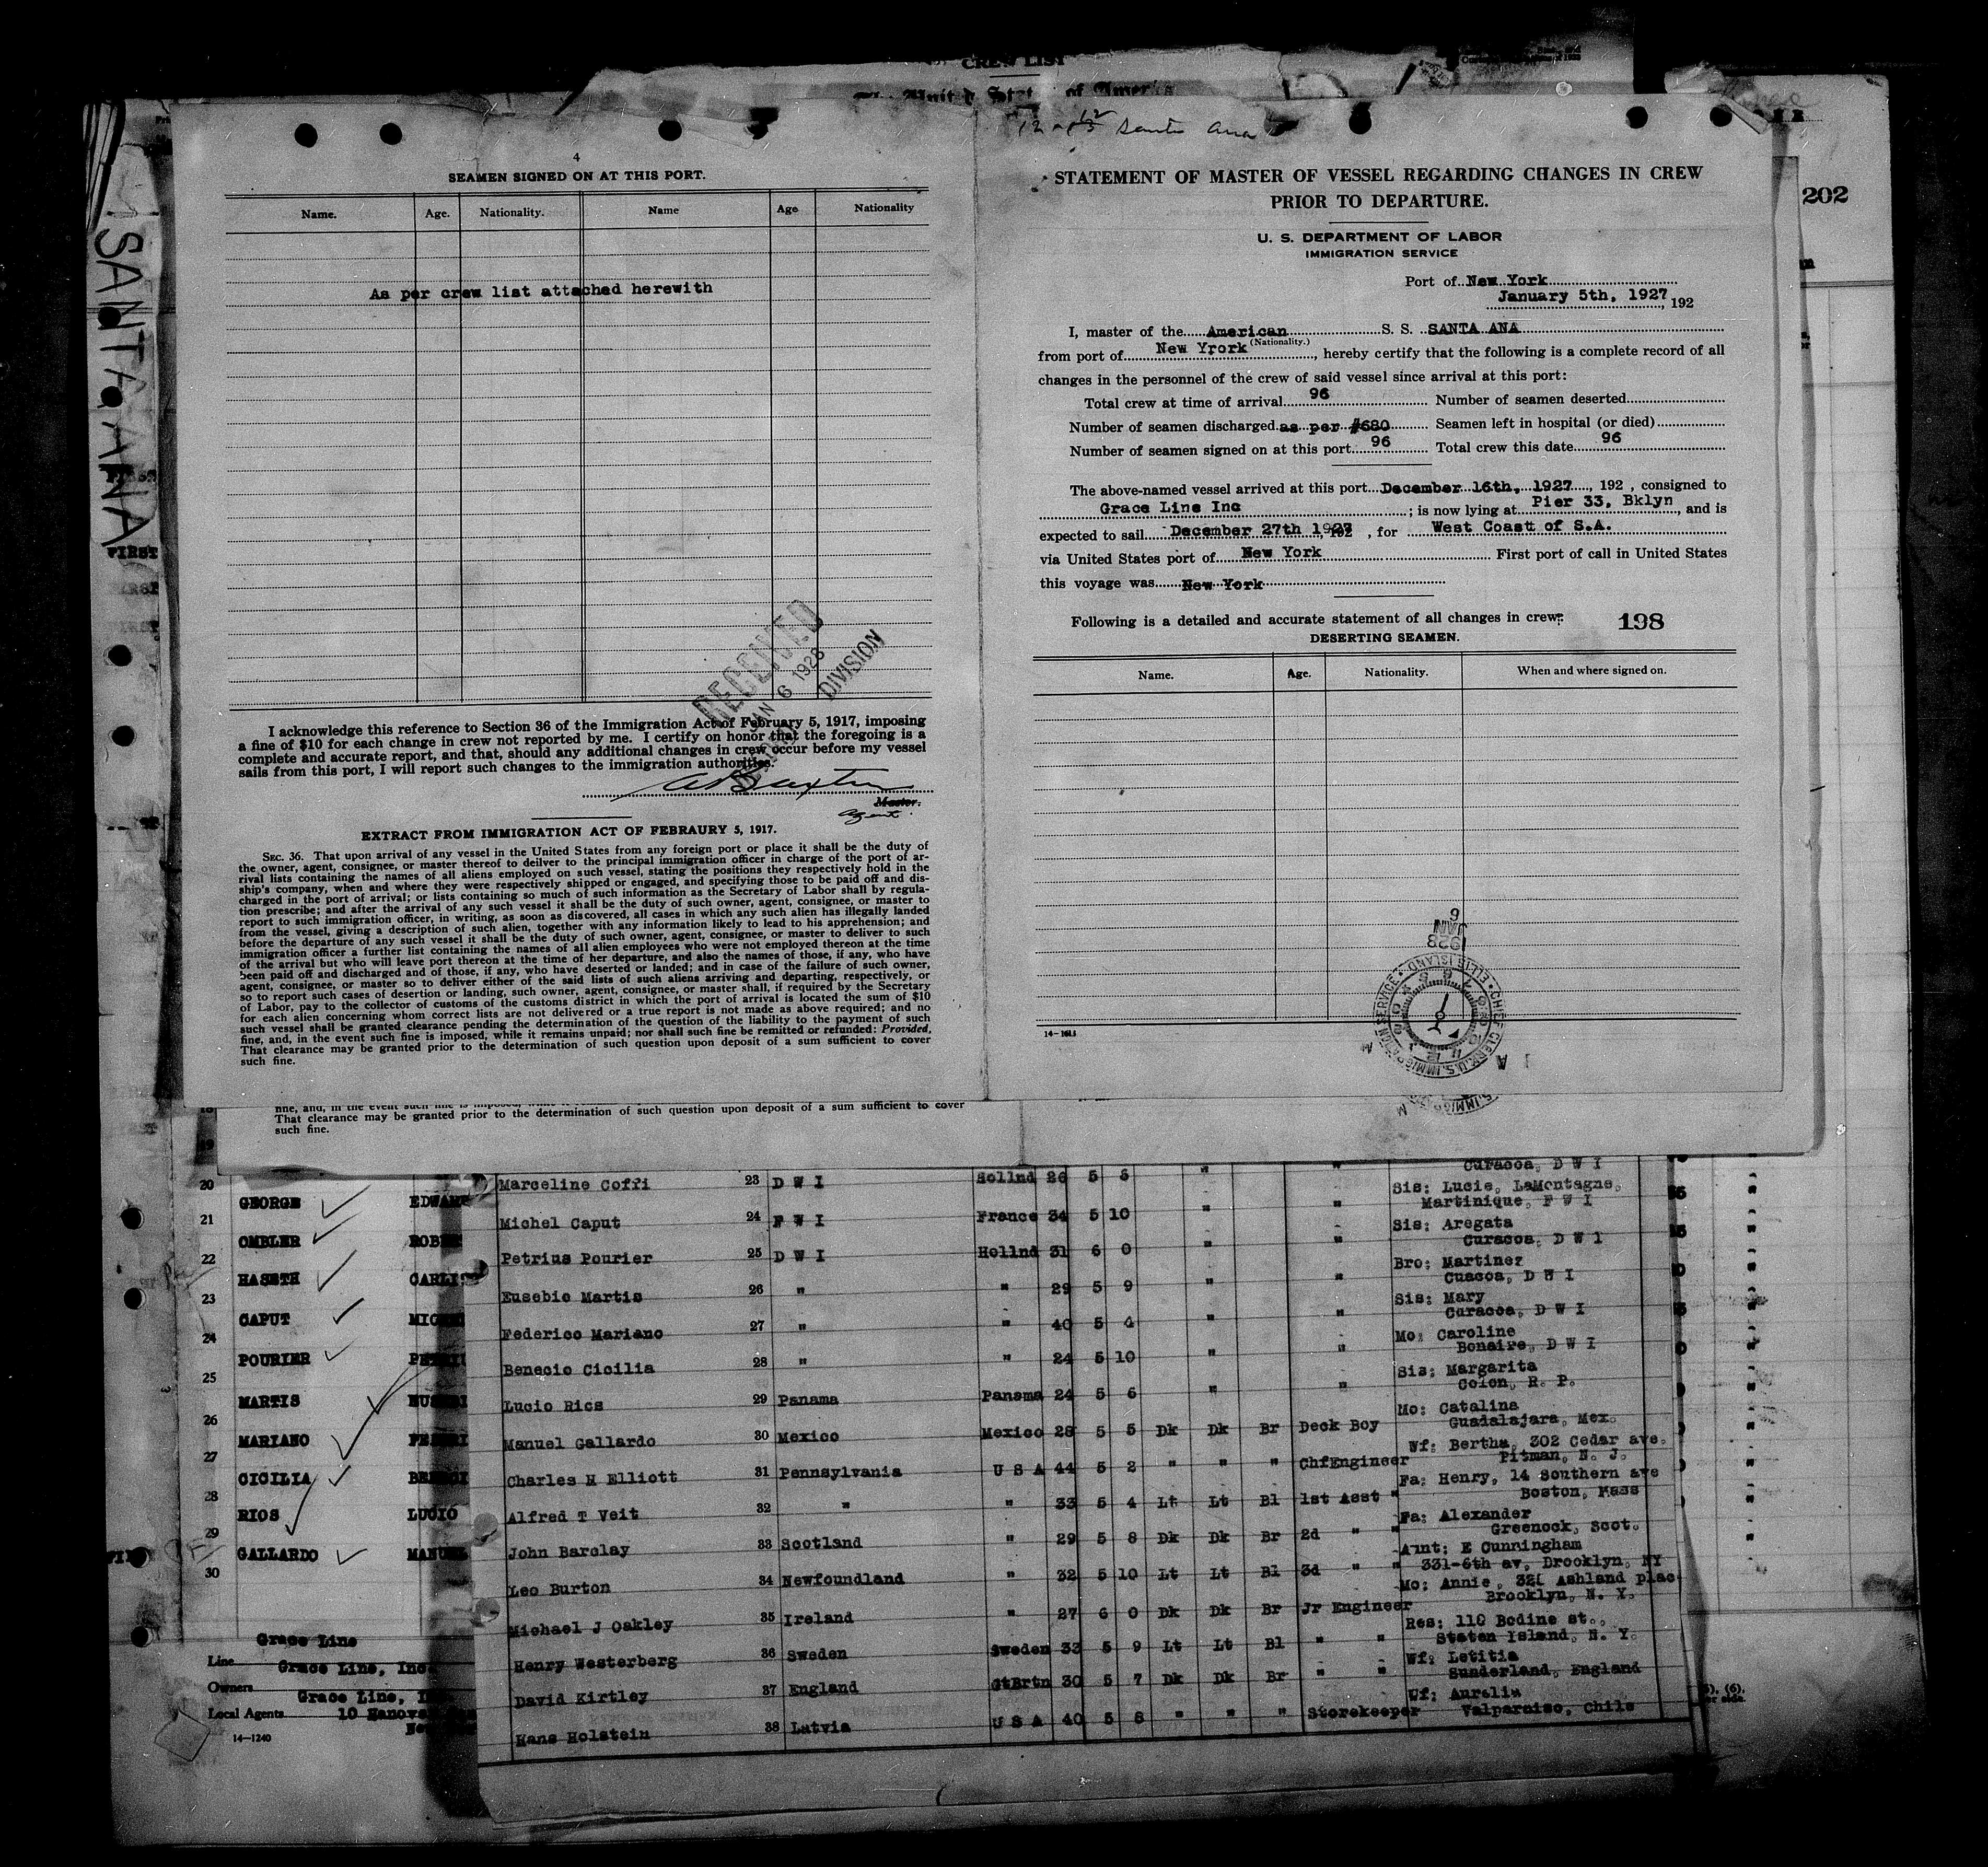 CREW LIST
SANTA ANA
202
4
SEAMEN SIGNED ON AT THIS PORT.
Name. Age. Nationality. Name Age Nationality
As per crew list attached herewith
RECEIVED
JAN 6 1928
DIVISION
I acknowledge this reference to Section 36 of the Immigration Act of February 5, 1917, imposing
a fine of $10 for each change in crew not reported by me. I certify on honor that the foregoing is a
complete and accurate report, and that, should any additional changes in crew occur before my vessel
sails from this port, I will report such changes to the immigration authorities.
Master.
Agent.
EXTRACT FROM IMMIGRATION ACT OF FEBRAURY 5, 1917.
SEC. 36. That upon arrival of any vessel in the United States from any foreign port or place it shall be the duty of
the owner, agent, consignee, or master thereof to deilver to the principal immigration officer in charge of the port of ar-
rival lists containing the names of all aliens employed on such vessel, stating the positions they respectively hold in the
ship's company, when and where they were respectively shipped or engaged, and specifying those to be paid off and dis-
charged in the port of arrival; or lists containing so much of such information as the Secretary of Labor shall by regula-
tion prescribe; and after the arrival of any such vessel it shall be the duty of such owner, agent, consignee, or master to
report to such immigration officer, in writing, as soon as discovered, all cases in which any such alien has illegally landed
from the vessel, giving a description of such alien, together with any information likely to lead to his apprehension; and
before the departure of any such vessel it shall be the duty of such owner, agent, consignee, or master to deliver to such
immigration officer a further list containing the names of all alien employees who were not employed thereon at the time
of the arrival but who will leave port thereon at the time of her departure, and also the names of those, if any, who have
been paid off and discharged and of those, if any, who have deserted or landed; and in case of the failure of such owner,
agent, consignee, or master so to deliver either of the said lists of such aliens arriving and departing, respectively, or
so to report such cases of desertion or landing, such owner, agent, consignee, or master shall, if required by the Secretary
of Labor, pay to the collector of customs of the customs district in which the port of arrival is located the sum of $10
for each alien concerning whom correct lists are not delivered or a true report is not made as above required; and no
such vessel shall be granted clearance pending the determination of the question of the liability to the payment of such
fine, and, in the event such fine is imposed, while it remains unpaid; nor shall such fine be remitted or refunded: Provided,
That clearance may be granted prior to the determination of such question upon deposit of a sum sufficient to cover
such fine.
Santa Ana
STATEMENT OF MASTER OF VESSEL REGARDING CHANGES IN CREW
PRIOR TO DEPARTURE.
U. S. DEPARTMENT OF LABOR
IMMIGRATION SERVICE
Port of New York
January 5th, 1927, 192
I, master of the American S. S. SANTA ANA
(Nationality.)
from port of New Yrork, hereby certify that the following is a complete record of all
changes in the personnel of the crew of said vessel since arrival at this port:
Total crew at time of arrival 96 Number of seamen deserted
Number of seamen discharged as per #680 Seamen left in hospital (or died)
Number of seamen signed on at this port 96 Total crew this date 96
The above-named vessel arrived at this port December 16th, 1927, 192 , consigned to
Grace Line Inc ; is now lying at Pier 33, Bklyn, and is
expected to sail December 27th 1927, 192 , for West Coast of S.A.
via United States port of New York First port of call in United States
this voyage was New York
Following is a detailed and accurate statement of all changes in crew: 198
DESERTING SEAMEN.
Name. Age. Nationality. When and where signed on.
JAN 6
1928
CHIEF CLERK, U.S. IMMIGRATION SERVICE ELLIS ISLAND
fine, and, in the event such fine is imposed, while it
That clearance may be granted prior to the determination of such question upon deposit of a sum sufficient to cover
such fine.
19
20 GEORGE EDWARD
21 OMBLER ROBE
22 HASETH CARLI
23 CAPUT MICH
24 POURIER
25 MARTIS
26 MARIANO
27 CICILIA
28 RIOS LUCIO
29 GALLARDO MANUEL
30
Line Grace Line
Owners Grace Line, Inc
Local Agents Grace Line,
10 Hanover
14—1240
Curacoa, D W I
Marceline Coffi 23 D W I Hollnd 26 5 6 " " Sis: Lucie, LaMontagne,
Martinique, F W I
Michel Caput 24 F W I France 34 5 10 " " Sis: Aregata
Curacoa, D W I
Petrius Pourier 25 D W I Hollnd 31 6 0 " " Bro: Martinez
Cuacoa, D W I
Eusebio Martis 26 " " 29 5 9 " " Sis: Mary
Curacoa, D W I
Federico Mariano 27 " " 40 5 4 " " Mo: Caroline
Bonaire, D W I
Benecio Cicilia 28 " " 24 5 10 " " Sis: Margarita
Colon, R. P.
Lucio Rios 29 Panama Panama 24 5 6 " " Mo: Catalina
Guadalajara, Mex.
Manuel Gallardo 30 Mexico Mexico 28 5 5 Dk Dk Br Deck Boy
Wf: Bertha, 302 Cedar ave.
Pitman, N. J.
Charles H Elliott 31 Pennsylvania U S A 44 5 2 " " " ChfEngineer
Fa: Henry, 14 Southern ave
Boston, Mass
Alfred T Veit 32 " " 33 5 4 Lt Lt Bl 1st Asst "
Fa: Alexander
Greenock, Scot.
John Barclay 33 Scotland " 29 5 8 Dk Dk Br 2d " "
Aunt: E Cunningham
331-6th av, Brooklyn, NY
Leo Burton 34 Newfoundland " 32 5 10 Lt Lt Bl 3d " "
Mo: Annie, Ashland plac
Brooklyn, N. Y.
Michael J Oakley 35 Ireland " 27 6 0 Dk Dk Br Jr Engineer
Res: 110 Bodine st.,
Staten Island, N. Y.
Henry Westerberg 36 Sweden Sweden 33 5 9 Lt Lt Bl " "
Wf: Letitia
Sunderland, England
David Kirtley 37 England GtBrtn 30 5 7 Dk Dk Br " "
Wf: Aurelia
Valparaiso, Chile
Hans Holstein 38 Latvia U S A 40 5 8 " " " Storekeeper